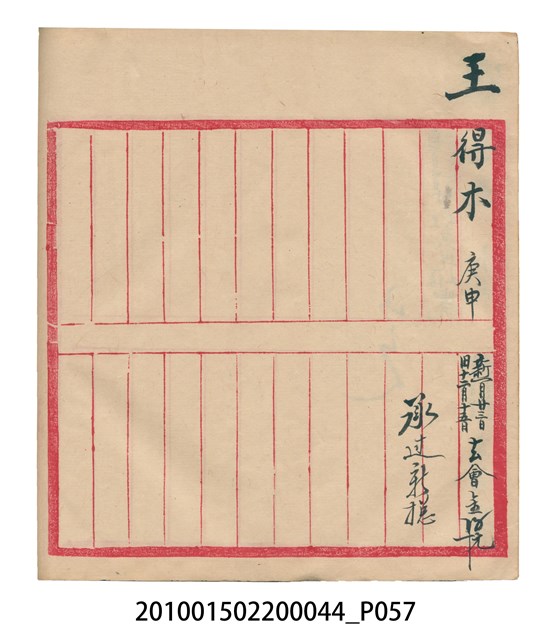 王得木 庚申 新一月廿三日 旧十二月十五日 去會金
承過新總
201001502200044_P057